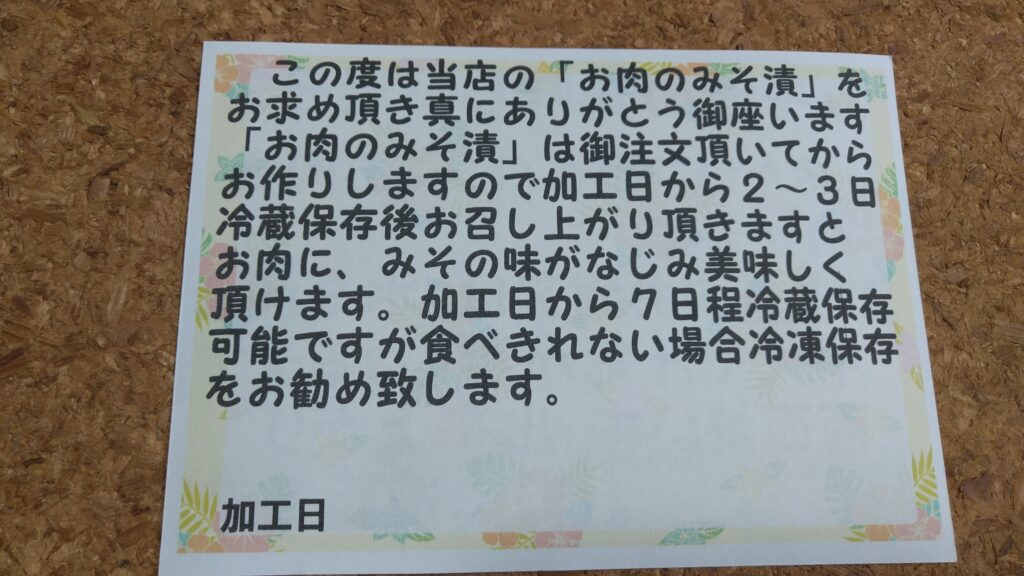 この度は当店の「お肉のみそ漬」を
お求め頂き真にありがとう御座います
「お肉のみそ漬」は御注文頂いてから
お作りしますので加工日から2～3日
冷蔵保存後お召し上がり頂きますと
お肉に、みその味がなじみ美味しく
頂けます。加工日から7日程冷蔵保存
可能ですが食べきれない場合冷凍保存
をお勧め致します。
加工日